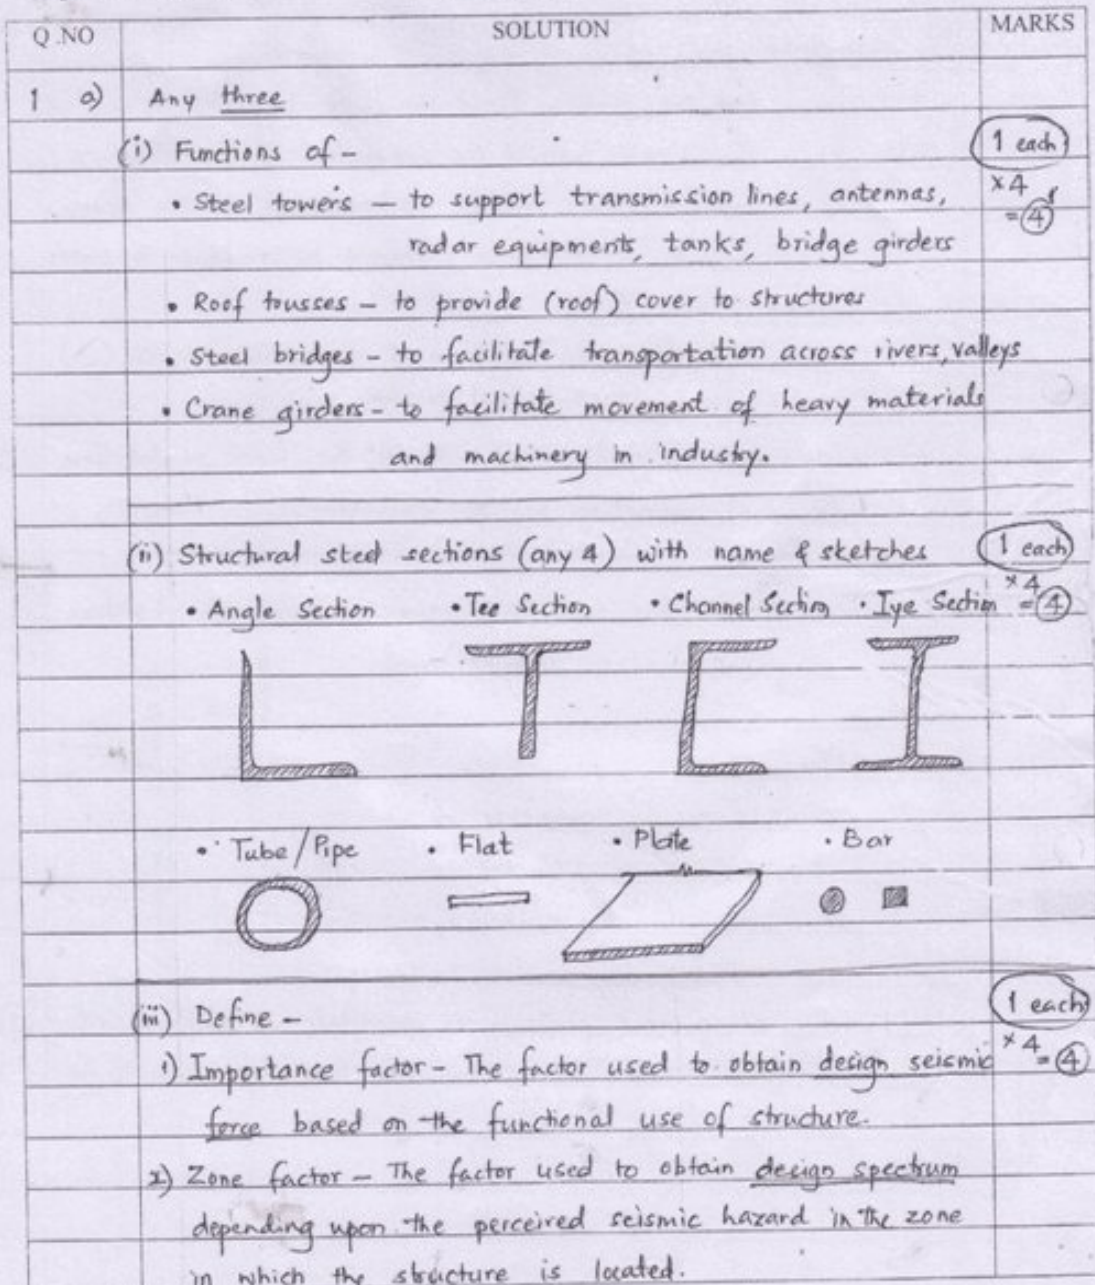 Q.NO SOLUTION MARKS
1 a) Any three
(i) Functions of - 1 each
• Steel towers - to support transmission lines, antennas, ×4
radar equipments, tanks, bridge girders =4
• Roof trusses - to provide (roof) cover to structures
• Steel bridges - to facilitate transportation across rivers, valleys
• Crane girders - to facilitate movement of heavy materials
and machinery in industry.
(ii) Structural steel sections (any 4) with name & sketches 1 each
• Angle Section • Tee Section • Channel Section • Iye Section ×4 =4
• Tube/Pipe • Flat • Plate • Bar
(iii) Define - 1 each
1) Importance factor - The factor used to obtain design seismic ×4 =4
force based on the functional use of structure.
2) Zone factor - The factor used to obtain design spectrum
depending upon the perceived seismic hazard in the zone
in which the structure is located.